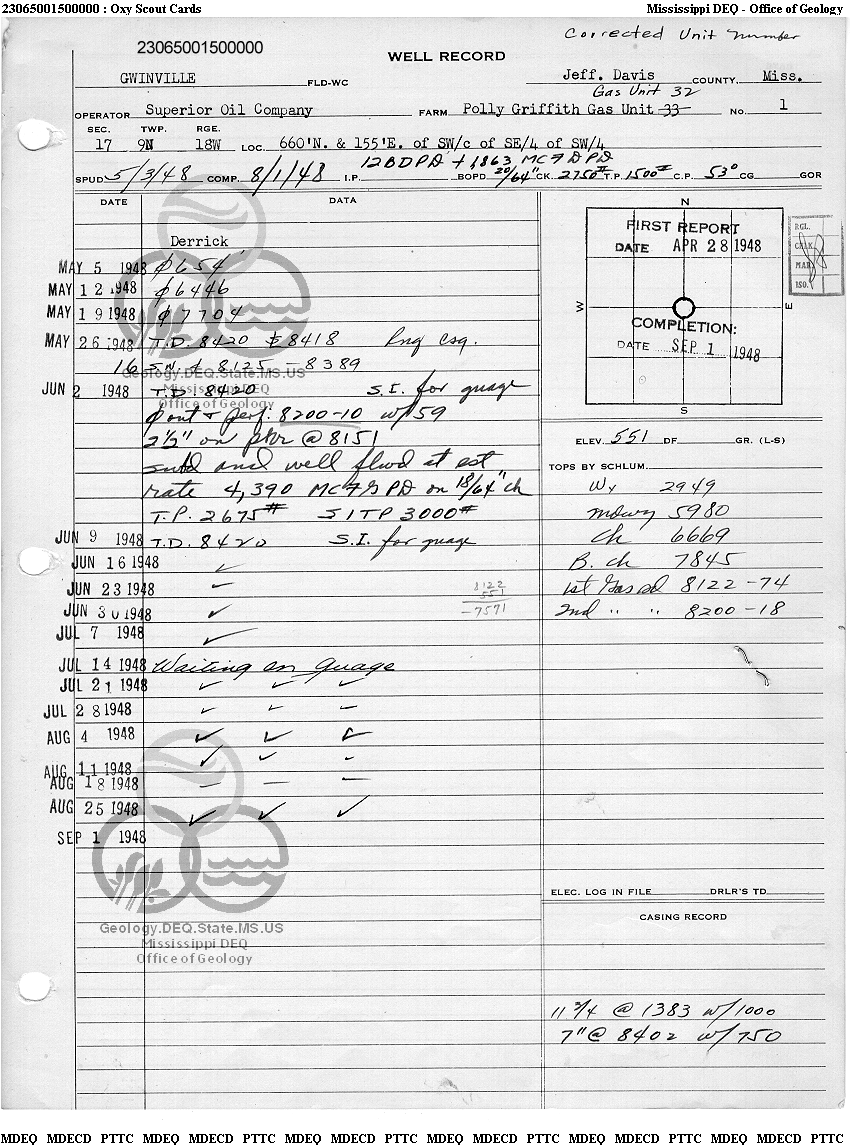 23065001500000 : Oxy Scout Cards
Mississippi DEQ - Office of Geology
23065001500000
Corrected Unit number
WELL RECORD
GWINVILLE FLD-WC Jeff. Davis COUNTY, Miss.
Gas Unit 32
OPERATOR Superior Oil Company FARM Polly Griffith Gas Unit 33 NO. 1
SEC. TWP. RGE.
17 9N 18W LOC. 660'N. & 155'E. of SW/c of SE/4 of SW/4
12BDPD + 1863 MCFDPD
SPUD 5/3/48 COMP. 8/1/48 I.P. BOPD 20/64" CK. 2750# T.P. 1500# C.P. 53° CG GOR
DATE DATA
Derrick
MAY 5 1948 φ654'
MAY 12 1948 φ6446
MAY 19 1948 φ7704
MAY 26 1948 T.D. 8420 8418 Rng csg.
16 S.N. 8125-8389
JUN 2 1948 T.D. 8420 S.I. for guage
φ out + perf. 8200-10 w/59
2½" on pkr @ 8151
and well flwd at est
rate 4,390 MCFGPD on 18/64" ch
T.P. 2675# SITP 3000#
JUN 9 1948 T.D. 8420 S.I. for guage
JUN 16 1948
JUN 23 1948
JUN 30 1948
JUL 7 1948
8122
551
-7571
JUL 14 1948 Waiting on Guage
JUL 21 1948
JUL 28 1948
AUG 4 1948
AUG 11 1948
AUG 18 1948
AUG 25 1948
SEP 1 1948
N
FIRST REPORT
DATE APR 28 1948
W E
COMPLETION:
DATE SEP 1 1948
S
RGL.
CHK.
MAP
ISO.
ELEV. 551 DF GR. (L-S)
TOPS BY SCHLUM.
Wx 2949
mdwy 5980
Ch 6669
B. ch 7845
1st Gas sd 8122-74
2nd " " 8200-18
ELEC. LOG IN FILE DRLR'S TD
CASING RECORD
11 3/4 @ 1383 w/1000
7" @ 8402 w/750
Geology.DEQ.State.MS.US
Mississippi DEQ
Office of Geology
Geology.DEQ.State.MS.US
Mississippi DEQ
Office of Geology
MDEQ MDECD PTTC MDEQ MDECD PTTC MDEQ MDECD PTTC MDEQ MDECD PTTC MDEQ MDECD PTTC MDEQ MDECD PTTC